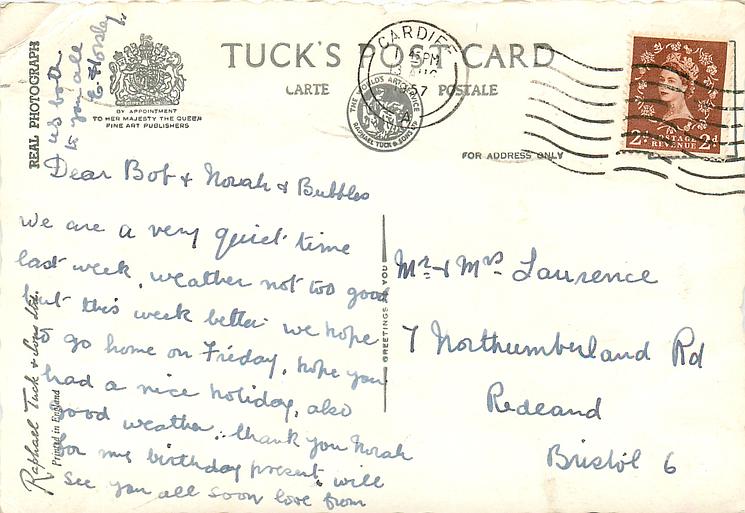 TUCK'S POST CARD
CARTE POSTALE
BY APPOINTMENT
TO HER MAJESTY THE QUEEN
FINE ART PUBLISHERS
REAL PHOTOGRAPH
CARDIFF
PM
1957
THE WORLD'S ART SERVICE
RAPHAEL TUCK & SONS LTD
FOR ADDRESS ONLY
2D POSTAGE 2D
REVENUE
Dear Bob & Norah & Bubbles
we are a very quiet time
last week, weather not too good
but this week better we hope
to go home on Friday, hope you
had a nice holiday, also
good weather, thank you Norah
for my birthday present, will
see you all soon love from
us both
to you all
GREETINGS TO YOU
Mr & Mrs Laurence
7 Northumberland Rd
Redeand
Bristol 6
Raphael Tuck & Sons Ltd.
Printed in England